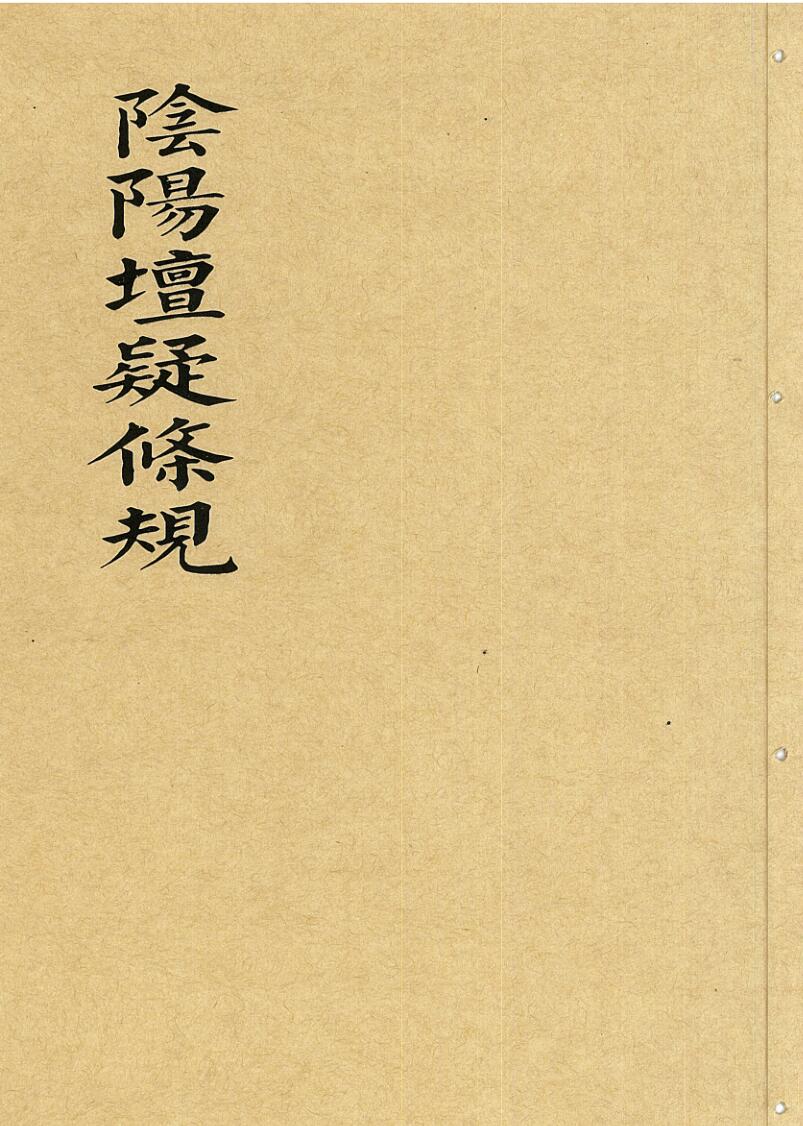 陰陽壇疑條規